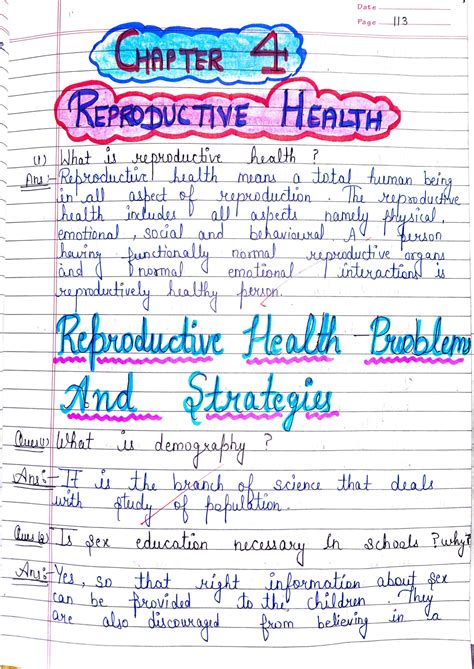 Date
Page 113
CHAPTER 4
REPRODUCTIVE HEALTH
(1) What is reproductive health ?
Ans:- Reproductive health means a total human being
in all aspect of reproduction. The reproductive
health includes all aspects namely physical,
emotional, social and behavioural. A person
having functionally normal reproductive organs
and normal emotional interactions is
reproductively healthy person.
Reproductive Health Problems
And Strategies
Ques(1) What is demography ?
Ans:- It is the branch of science that deals
with study of population.
Ques(2) Is sex education necessary In schools ? why?
Ans:- Yes, so that right information about sex
can be provided to the children. They
are also discouraged from believing in a